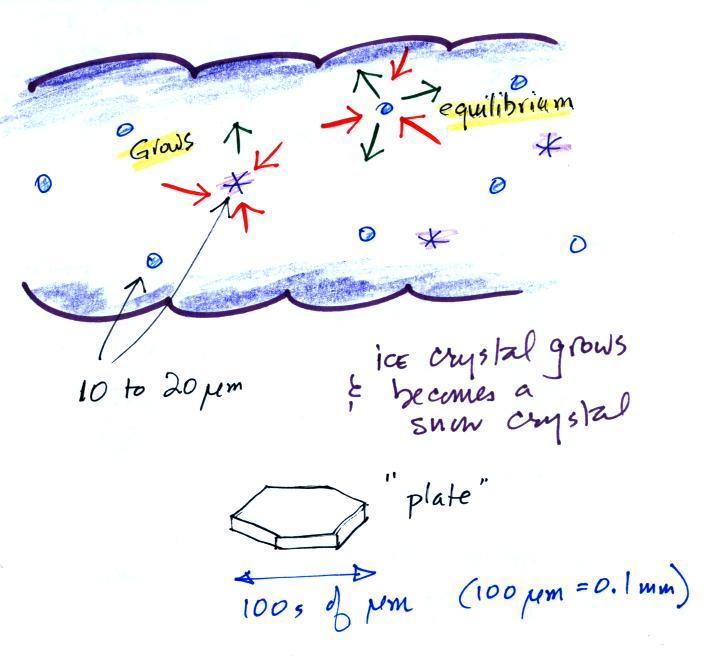 Grows
equilibrium
10 to 20 μm
ice crystal grows
& becomes a
snow crystal
"plate"
100s of μm (100 μm = 0.1 mm)